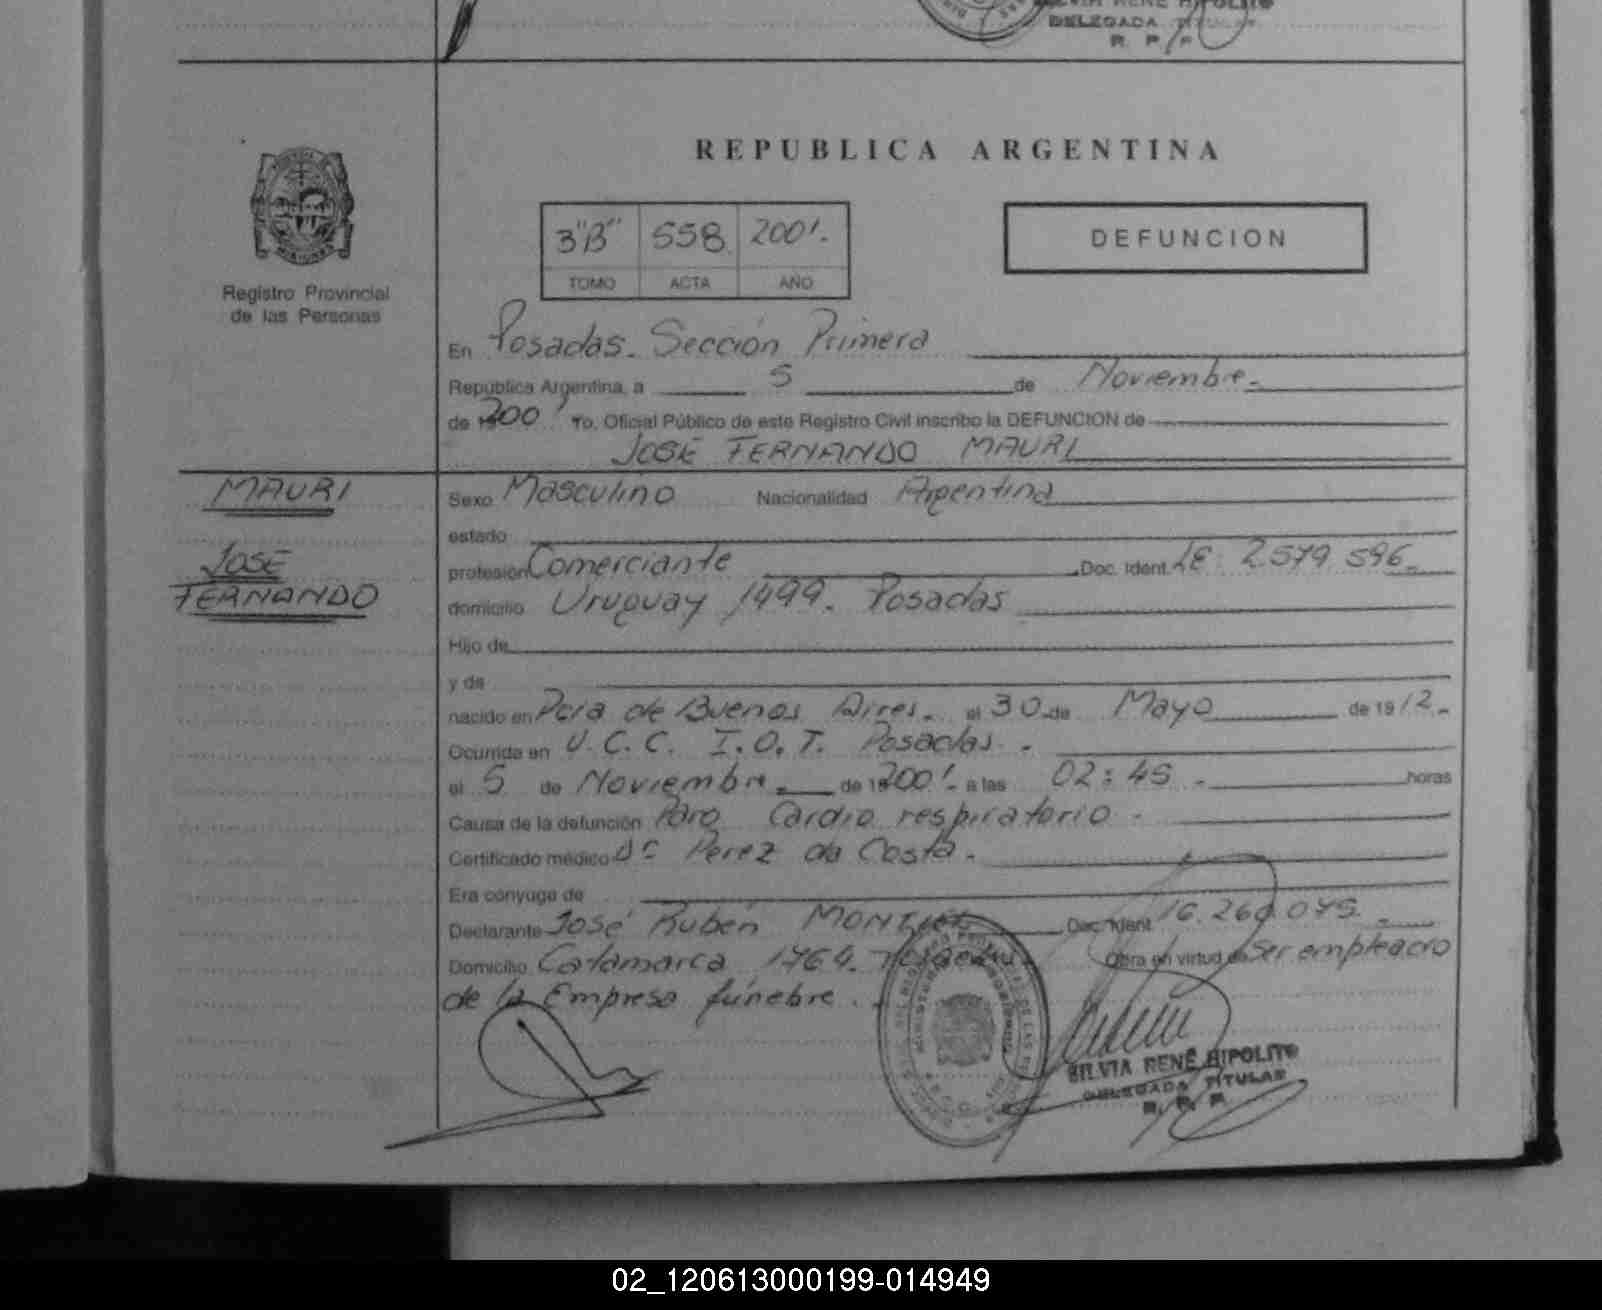 SILVIA RENÉ HIPOLITO
DELEGADA TITULAR
R. P. P.
REPUBLICA ARGENTINA
3"B" 558. 2001.-
TOMO ACTA AÑO
DEFUNCION
Registro Provincial
de las Personas
En Posadas. Sección Primera
República Argentina, a 5 de Noviembre.-
de 2001 Yo, Oficial Público de este Registro Civil inscribo la DEFUNCION de
JOSÉ FERNANDO MAURI
MAURI
JOSÉ
FERNANDO
Sexo Masculino Nacionalidad Argentina
estado
profesión Comerciante Doc. Ident. LE: 2.579.596.-
domicilio Uruguay 1499. Posadas
Hijo de
y de
nacido en Pcia de Buenos Aires. el 30 de Mayo de 1912.-
Ocurrida en U.C.C. I.O.T. Posadas.
el 5 de Noviembre de 2001. a las 02:45.- horas
Causa de la defunción Paro Cardio respiratorio.
Certificado médico Dr Perez da Costa.
Era cónyuge de
Declarante José Rubén MONTIEL Doc. Ident. 16.260.075.-
Domicilio Catamarca 1764. Posadas Obra en virtud de Ser empleado
de la Empresa fúnebre.
SILVIA RENÉ HIPOLITO
DELEGADA TITULAR
R. P. P.
02_120613000199-014949